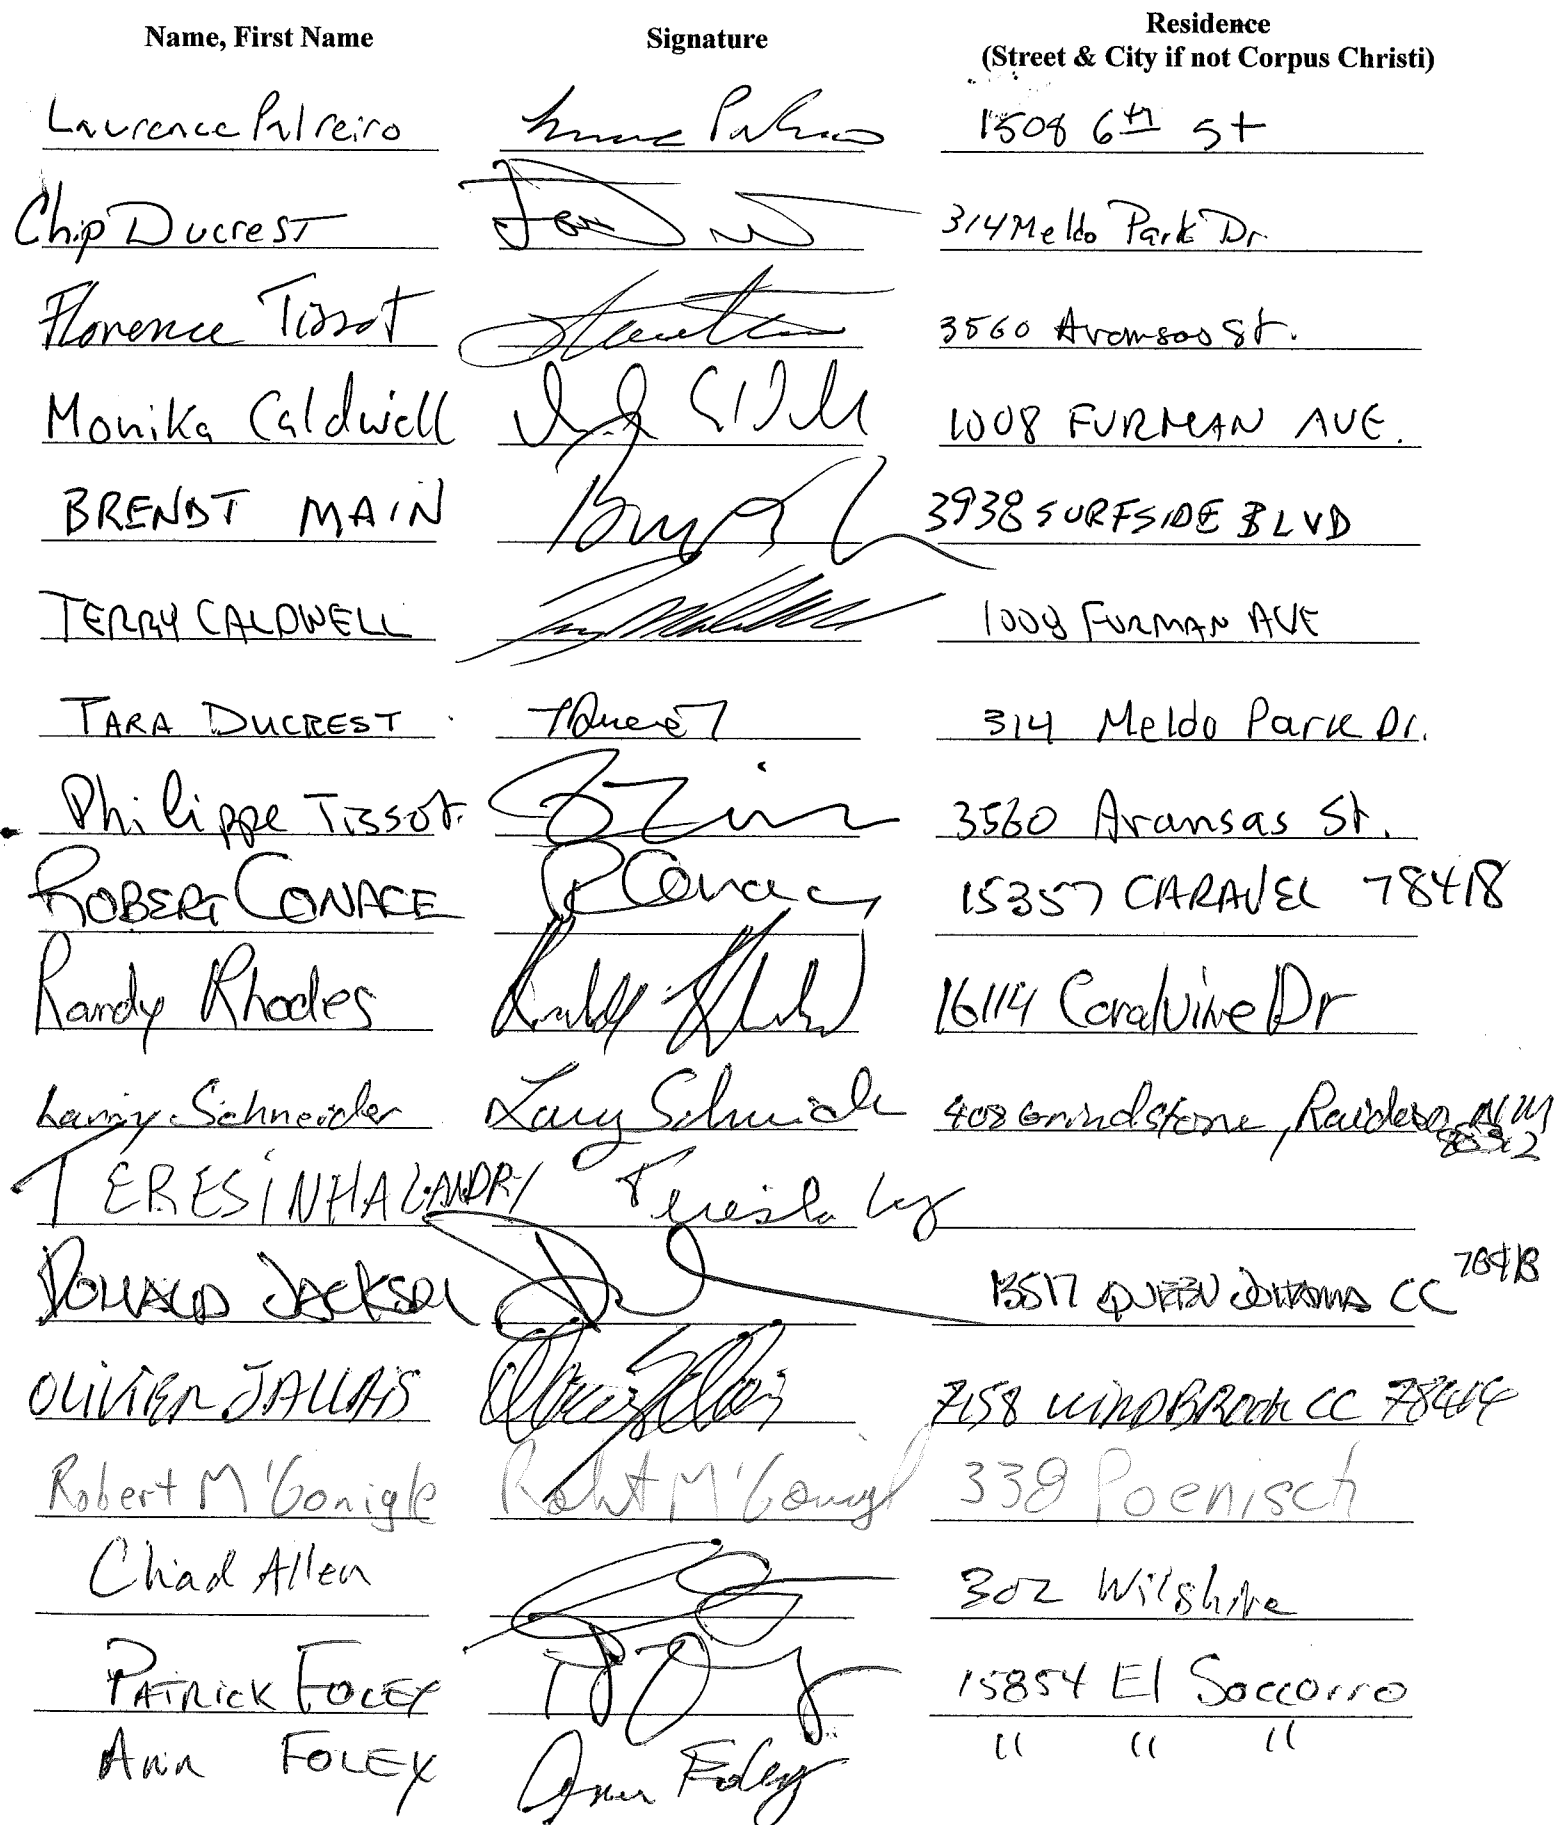 Name, First Name Signature Residence
(Street & City if not Corpus Christi)
Laurence Palreiro 1508 6th St
Chip Ducrest 314 Meldo Park Dr
Florence Tissot 3560 Aransas St.
Monika Caldwell 1008 FURMAN AVE.
BRENDT MAIN 3938 SURFSIDE BLVD
TERRY CALDWELL 1008 FURMAN AVE
TARA DUCREST TDucrest 314 Meldo Park Dr.
Philippe Tissot. 3560 Aransas St.
ROBERT CONACE RConace 15357 CARAVEL 78418
Randy Rhodes 16114 Coralvine Dr
Larry Schneider Larry Schneide 408 Grindstone, NM
TERESINHA LANDRY
DONALD JACKSON CC 78418
OLIVIER JALLAIS 7158 WINDBROOK CC 78414
Robert McGonigle Robt McGonigl 338 Poenisch
Chad Allen 302 Wilshire
PATRICK FOLEY 15854 El Soccorro
Ann FOLEY Ann Foley " " "